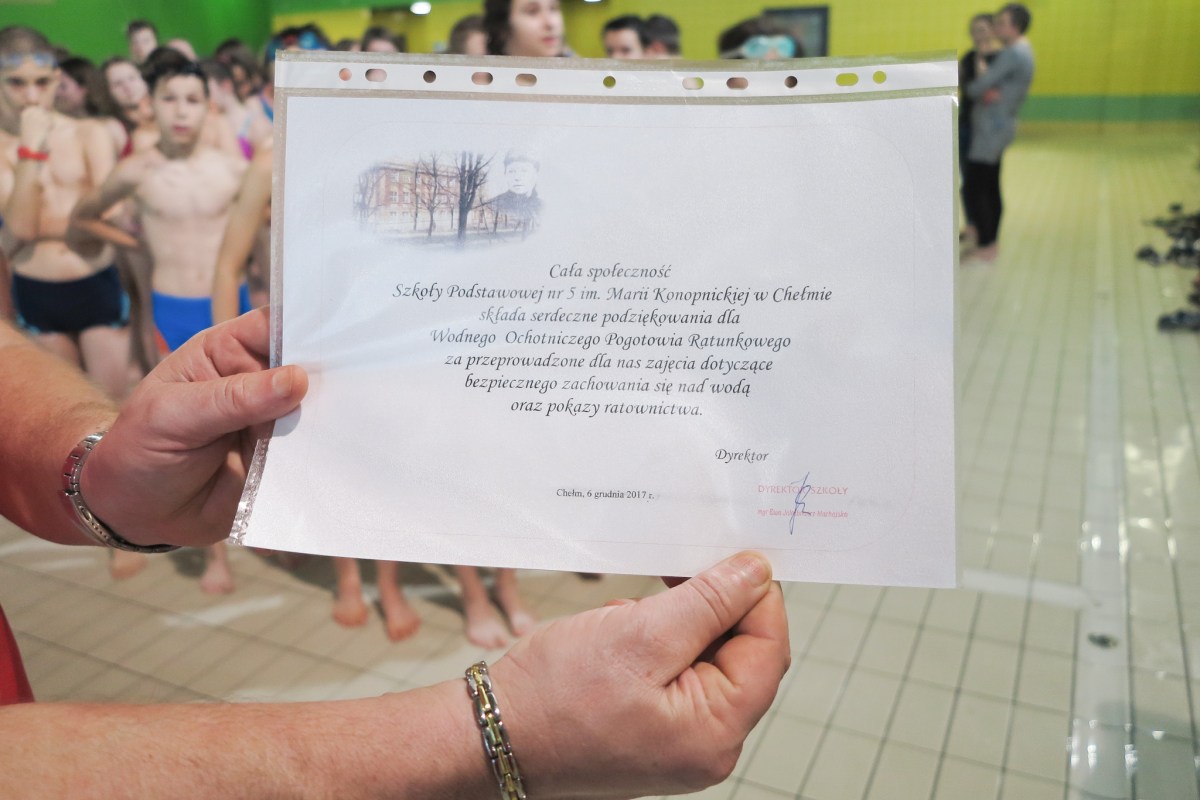 Cała społeczność
Szkoły Podstawowej nr 5 im. Marii Konopnickiej w Chełmie
składa serdeczne podziękowania dla
Wodnego Ochotniczego Pogotowia Ratunkowego
za przeprowadzone dla nas zajęcia dotyczące
bezpiecznego zachowania się nad wodą
oraz pokazy ratownictwa.
Dyrektor
Chełm, 6 grudnia 2017 r.
DYREKTOR SZKOŁY
mgr Ewa